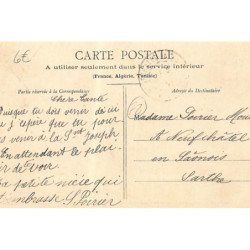 6€
CARTE POSTALE
A utiliser seulement dans le service intérieur
(France, Algérie, Tunisie)
Partie réservée à la Correspondance
Adresse du Destinataire
Chère Tante
Puisque tu dois venir de
j'espère que tu pour
venir à la St Joseph
En attendant le plai
ir de voir
ta petite nièce qui
embrasse S. Poirier
Madame Poirier
A Neufchâtel
en Saônois
Sarthe